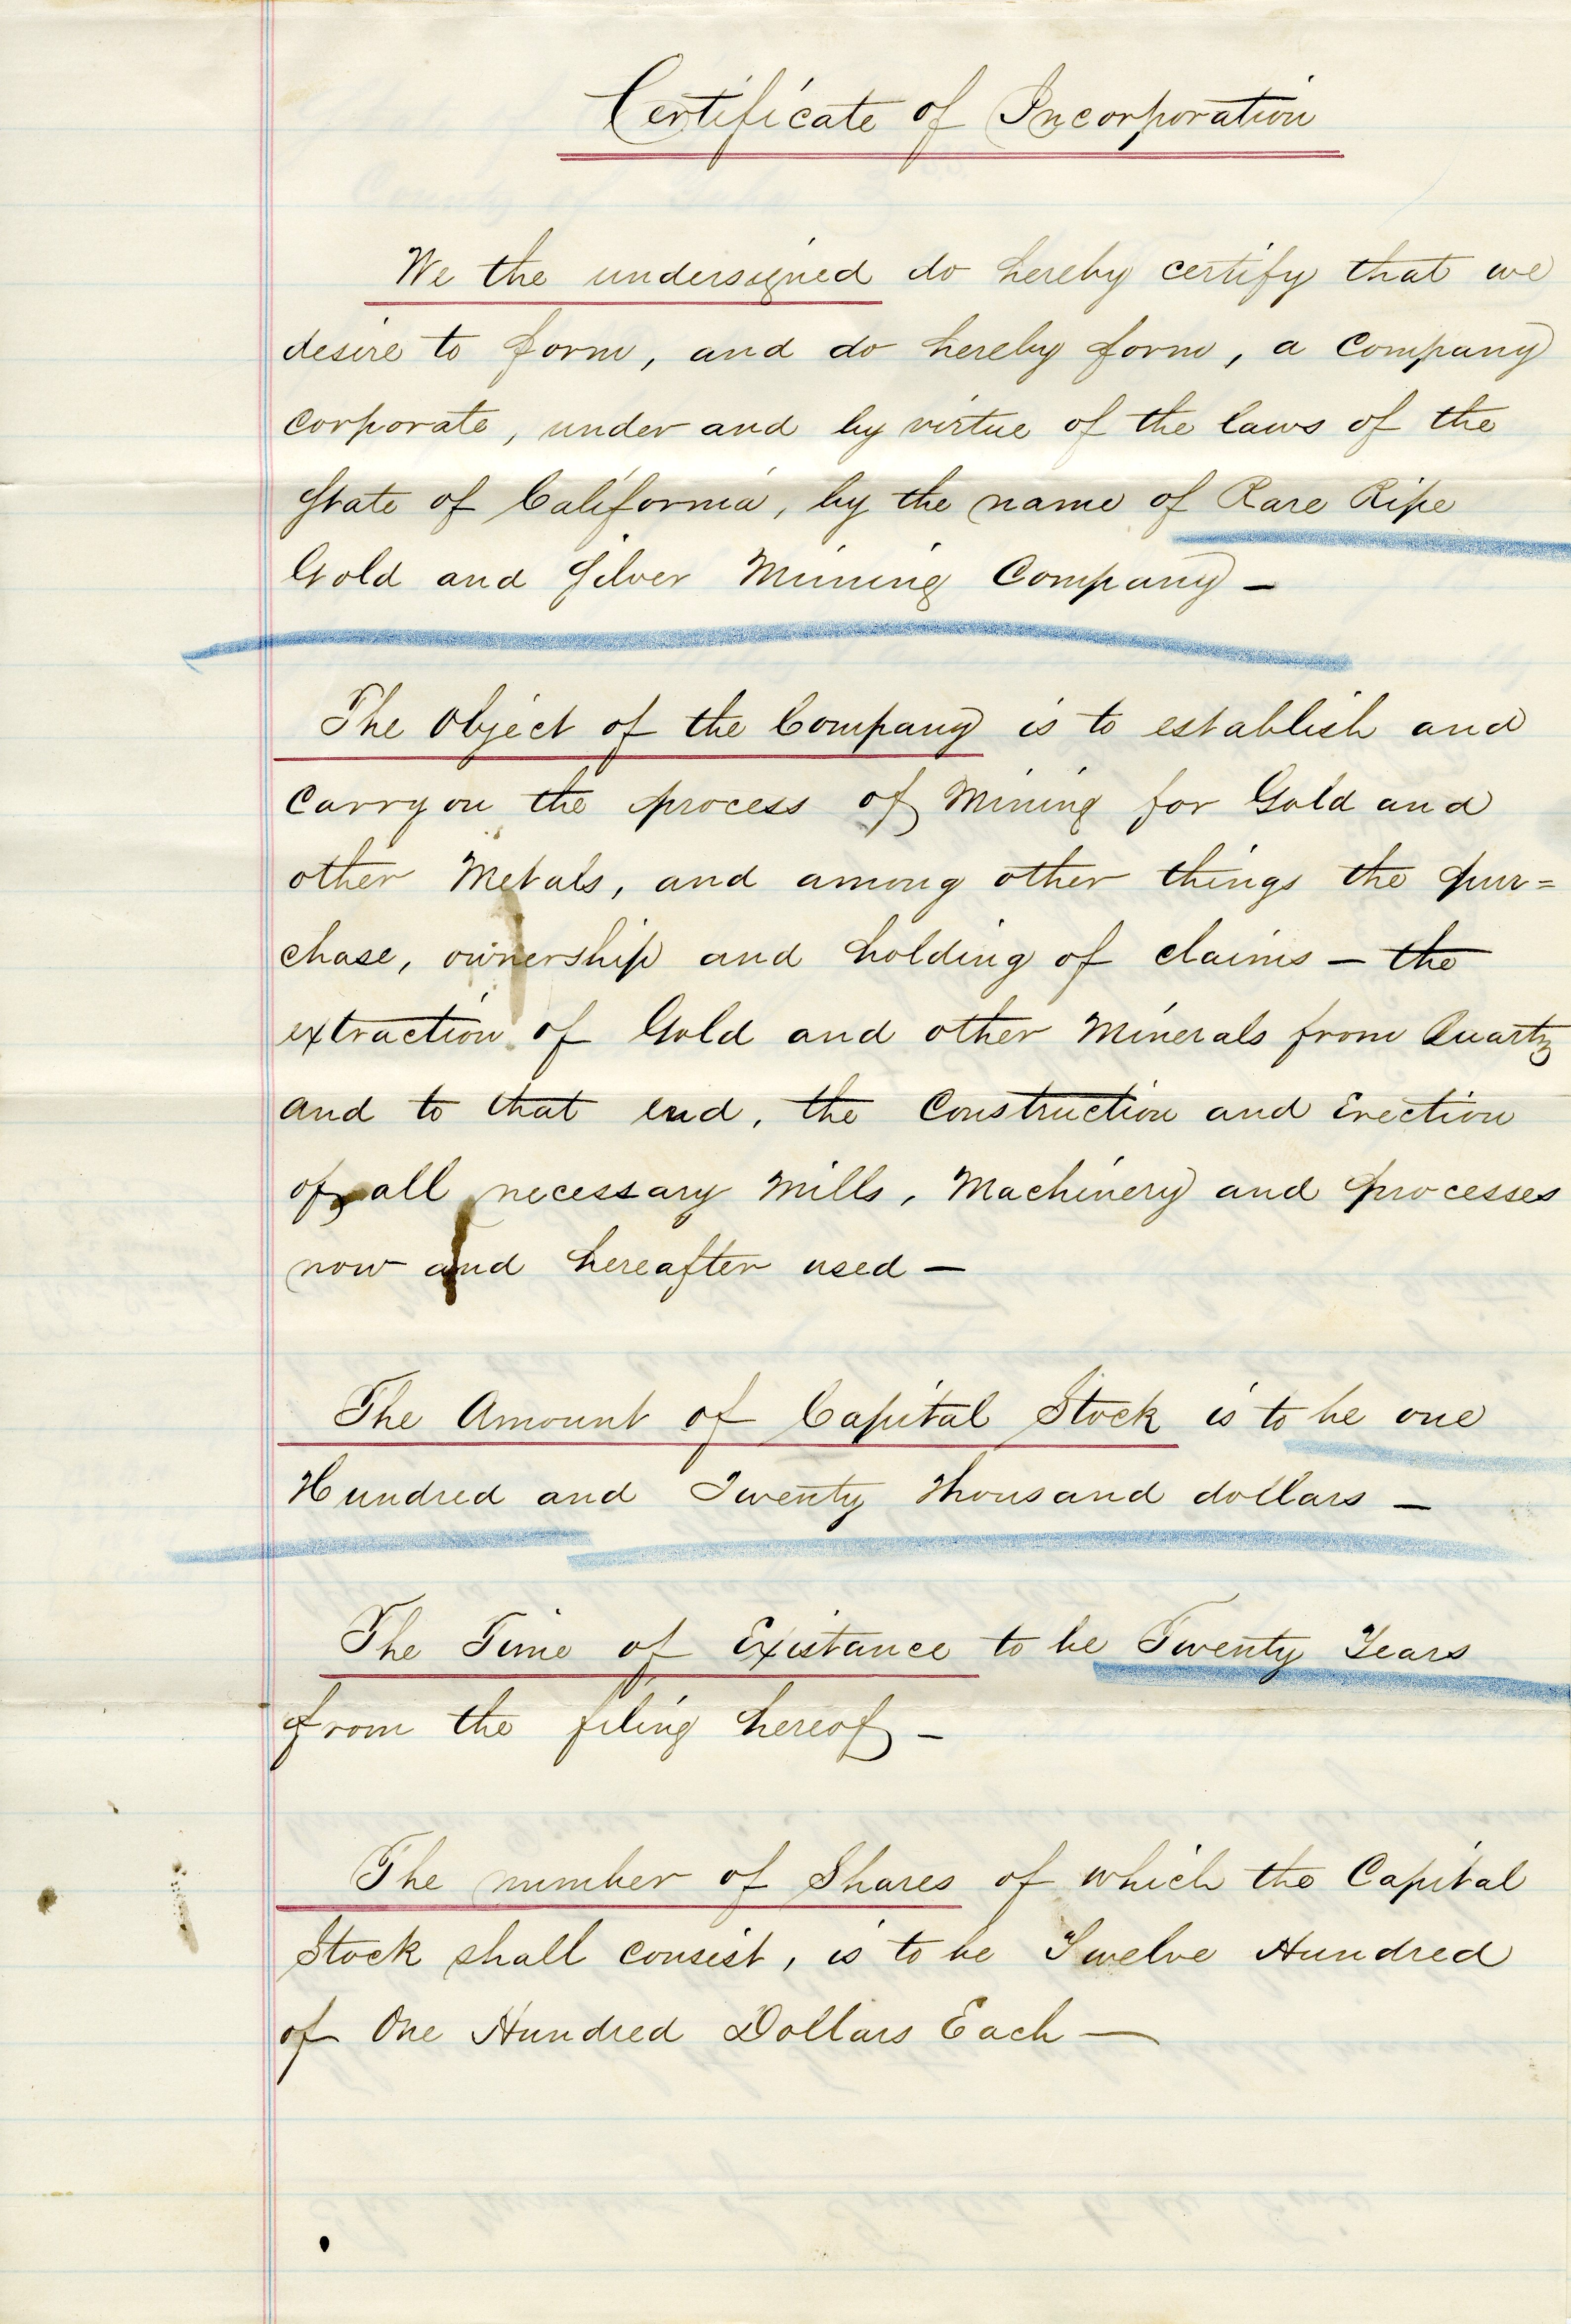 Certificate of Incorporation
We the undersigned do hereby certify that we
desire to form, and do hereby form, a Company
Corporate, under and by virtue of the laws of the
State of California, by the name of Rare Ripe
Gold and Silver Mining Company —
The Object of the Company is to establish and
Carry on the process of Mining for Gold and
other Metals, and among other things the pur=
chase, ownership and holding of claims — the
extraction of Gold and other Minerals from Quartz
and to that end, the Construction and Erection
of all necessary Mills, Machinery and processes
now and hereafter used —
The Amount of Capital Stock is to be one
Hundred and Twenty Thousand dollars —
The Time of Existance to be Twenty Years
from the filing hereof —
The number of Shares of which the Capital
Stock shall consist, is to be Twelve Hundred
of One Hundred Dollars Each —